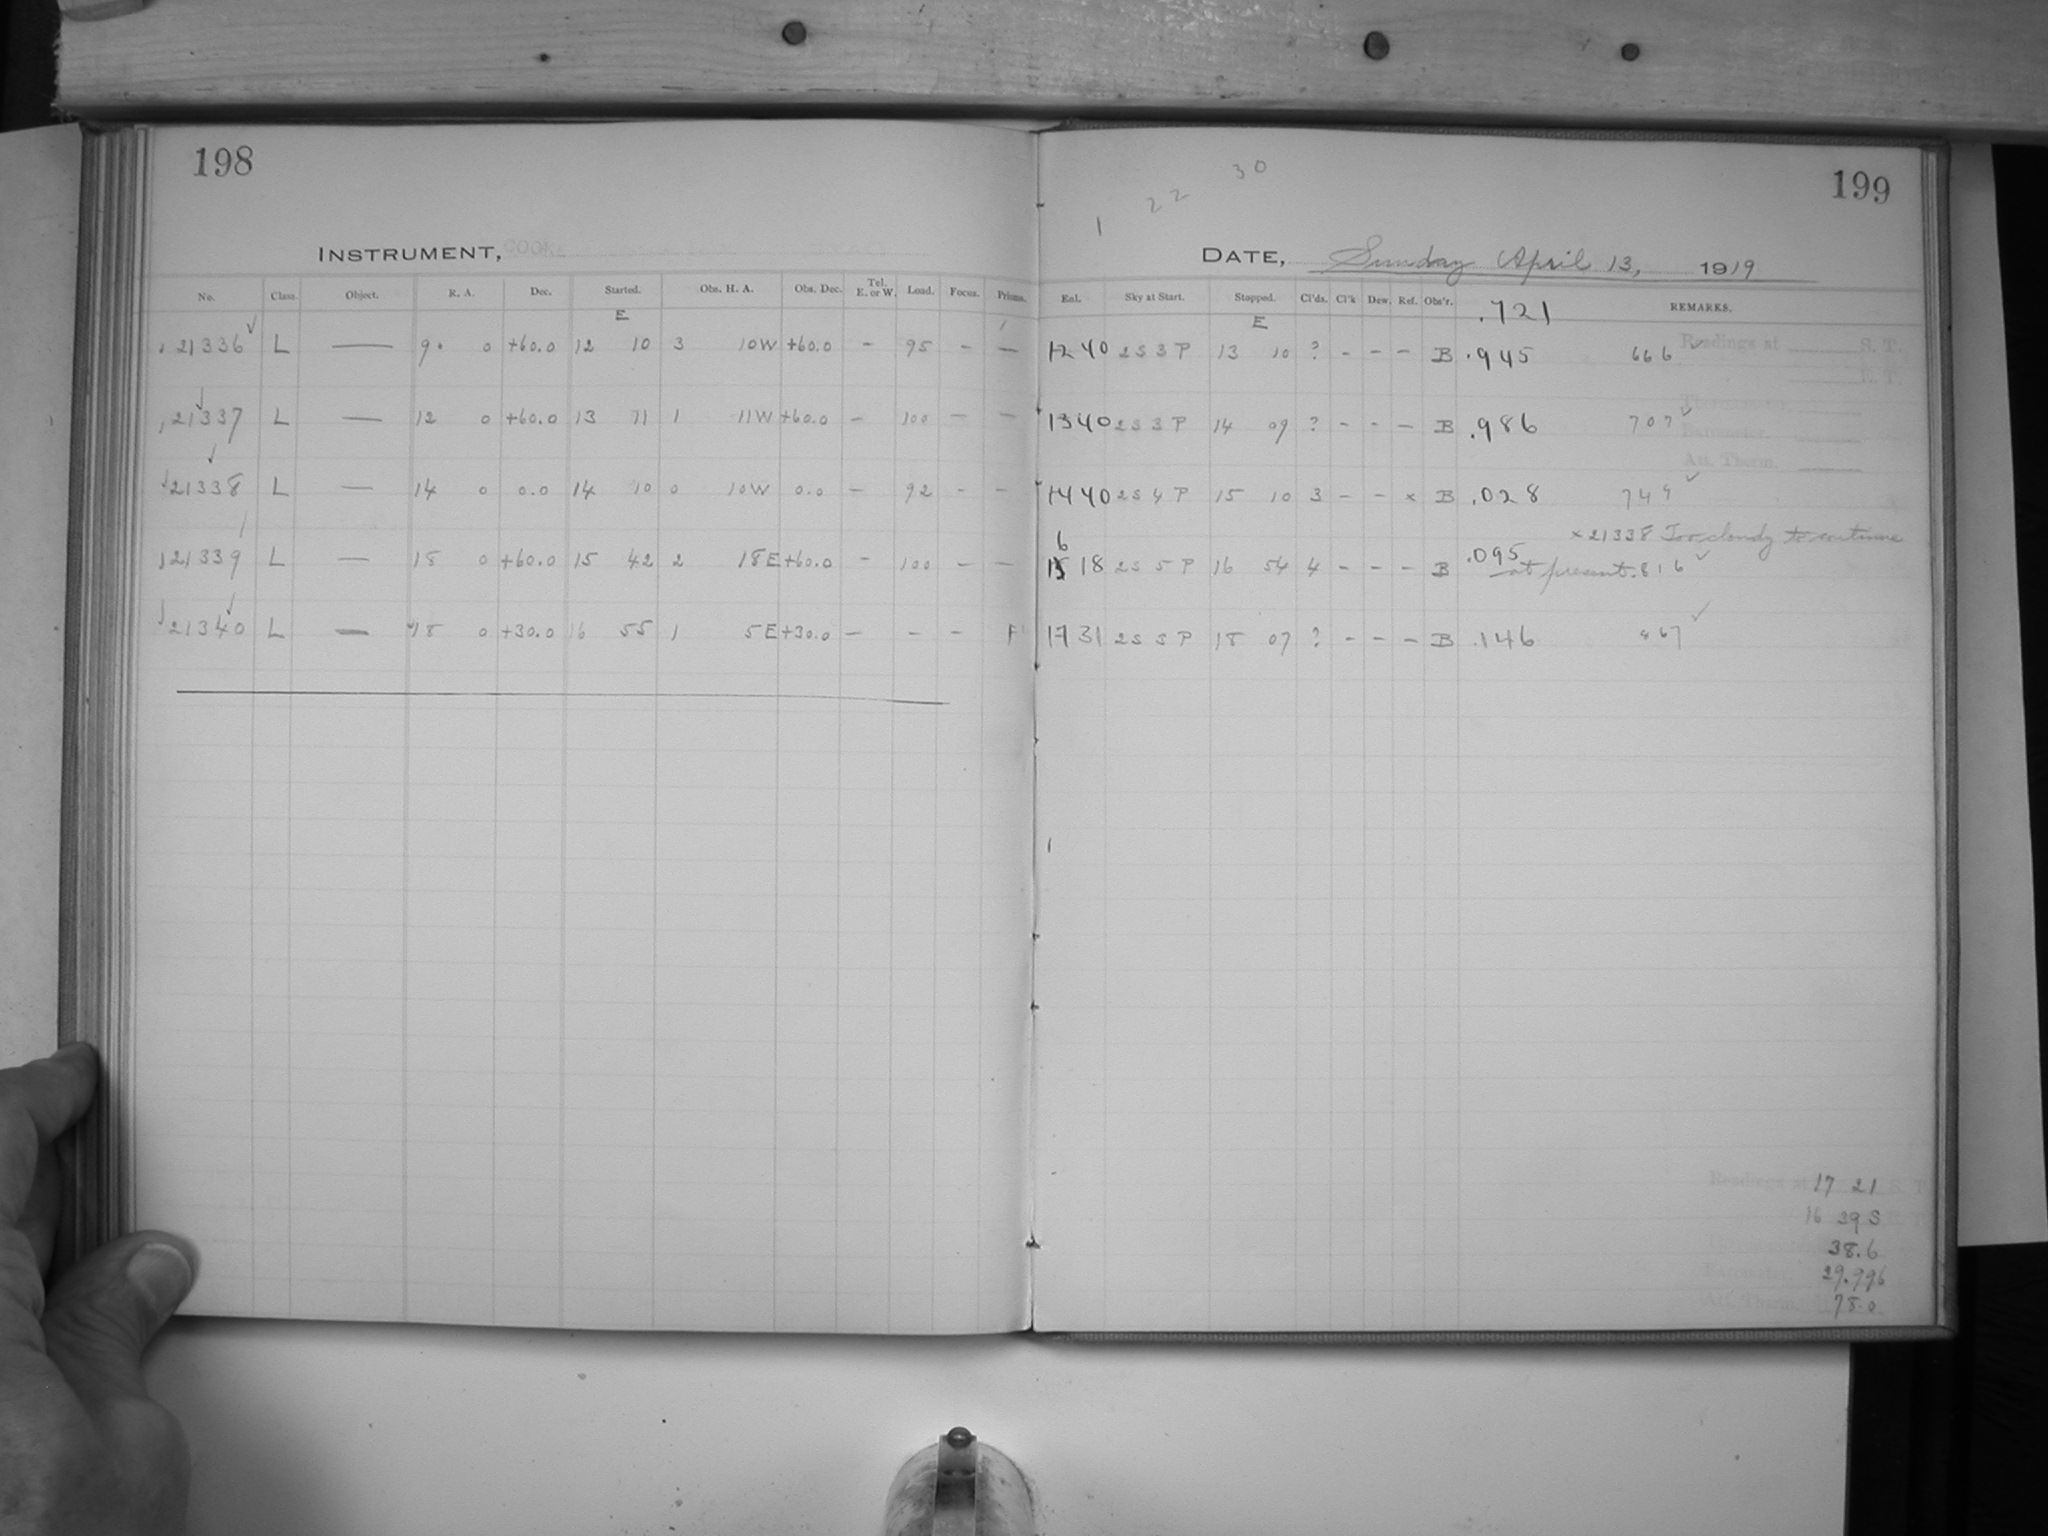 198
INSTRUMENT, COOKE
No. Class. Object. R. A. Dec. Started. Obs. H. A. Obs. Dec. Tel. E. or W. Load. Focus. Prisms.
E
21336 L — 9 0 +60.0 12 10 3 10W +60.0 - 95 - -
21337 L — 12 0 +60.0 13 11 1 11W +60.0 - 100 - -
21338 L — 14 0 0.0 14 10 0 10W 0.0 - 92 - -
21339 L — 18 0 +60.0 15 42 2 18E +60.0 - 100 - -
21340 L — 18 0 +30.0 16 55 1 5E +30.0 - - - F
199
30
22
1
DATE, Sunday April 13, 1919
Enl. Sky at Start. Stopped. Cl'ds. Cl'k Dew. Ref. Obs'r. .721 REMARKS.
E
12 40 2 S 3 P 13 10 ? - - - B .945 666 Readings at S. T.
E. T.
13 40 2 S 3 P 14 09 ? - - - B .986 707
Barometer.
Att. Therm.
14 40 2 S 4 P 15 10 3 - - × B .028 749
× 21338 Too cloudy to continue
6
18 2 S 5 P 16 54 4 - - - B .095 at present. 816
17 31 2 S 5 P 18 07 ? - - - B .146 867
Readings at 17 21 S. T.
16 39 S
38.6
Barometer 29.996
Att. Therm. 78.0